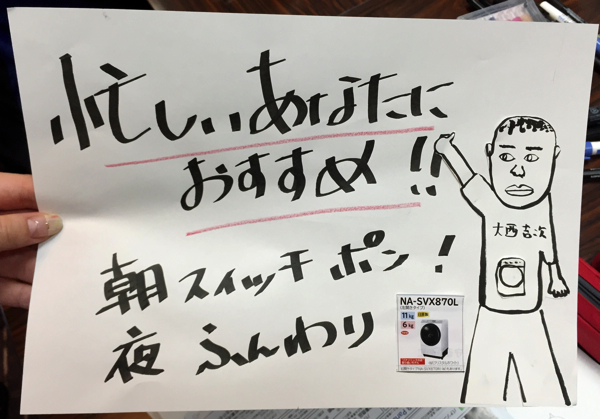 忙しいあなたに
おすすめ!!
朝スイッチポン!
夜ふんわり
大西吉次
NA-SVX870L
(左開きタイプ)
11kg
6kg